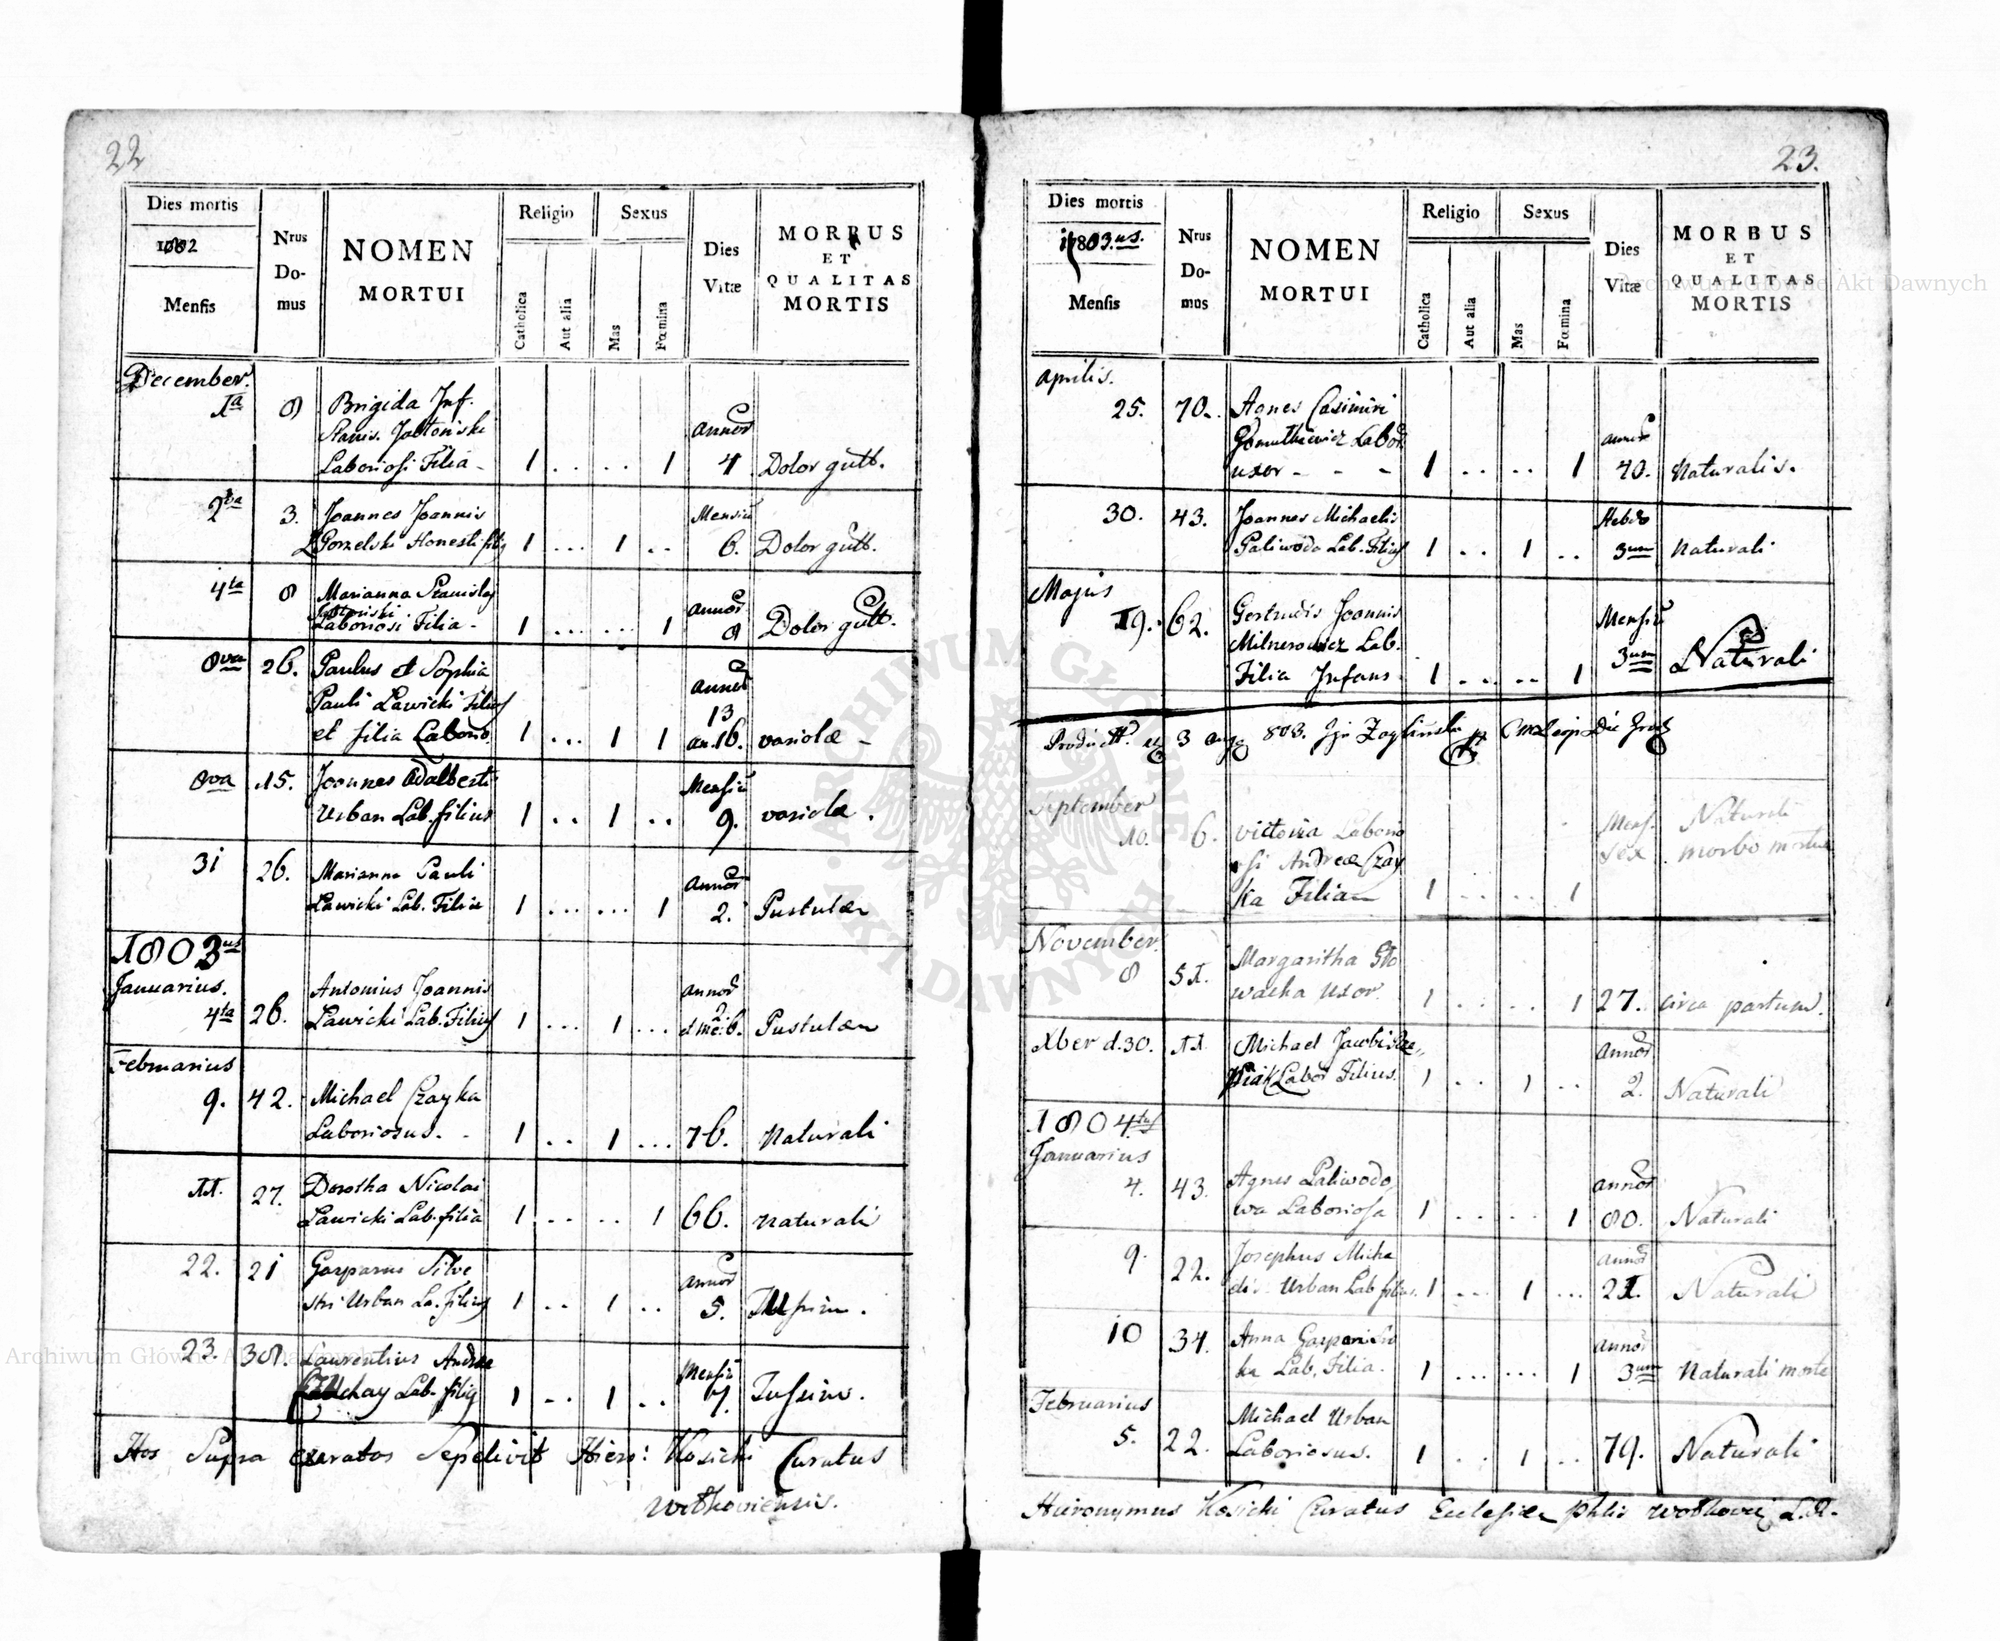 22
Dies mortis
1802
Mensis
Nrus
Do-
mus
NOMEN
MORTUI
Religio
Catholica
Aut alia
Sexus
Mas
Fœmina
Dies
Vitæ
MORBUS
ET
QUALITAS
MORTIS
December.
1a 8 Brigida Inf.
Stanis. Jabłoński Annor
Laboriosi Filia - 1 . . . . 1 4 Dolor gutt.
2da 3. Joannes Joannis Mensiū
Gorzelski Honesti filis 1 ... 1 .. 6. Dolor gutt.
4ta 8 Marianna Stanislaj
Jabłoński Annor
Laboriosi Filia - 1 ... ... 1 8 Dolor gutt.
8va 26. Paulus et Sophia
Pauli Lawicki Filius Annor 13
et filia Laborio. 1 ... 1 1 an. 16. variolæ -
8va 15. Joannes Adalberti Mensiū
Urban Lab. filius 1 .. 1 .. 9. variolæ.
31 26. Marianna Pauli Annor
Lawicki Lab. Filia 1 ... ... 1 2. Pustulæ
1803us
Januarius. Antonius Joannis Annor 2.
4ta 26. Lawicki Lab. Filius 1 ... 1 ... et me: 6. Pustulæ
Februarius
9. 42. Michael Czayka
Laboriosus. - 1 .. 1 ... 76. Naturali
11. 27. Dorotha Nicolai
Lawicki Lab. filia 1 .. .. 1 66. naturali
22. 21 Gasparus Silve Annor
stri Urban La. Filius 1 .. 1 .. 5. Tussim.
23. 38. Laurentius Andreæ Mensiū
Lab. filig 1 .. 1 .. 7. Tussim.
Hos Supra exaratos Sepelivit Hiero: Kosicki Curatus
Wolkoviensis.
23.
Dies mortis
1803.us.
Mensis
Nrus
Do-
mus
NOMEN
MORTUI
Religio
Catholica
Aut alia
Sexus
Mas
Fœmina
Dies
Vitæ
MORBUS
ET
QUALITAS
MORTIS
Aprilis.
25. 70. Agnes Casimiri
Gomułkiewicz Labor. Annor
uxor - - - 1 .. .. 1 40. Naturalis.
30. 43. Joannes Michaelis Hebdo
Paliwoda Lab. Filius 1 .. 1 .. 3um Naturali
Majus
19. 62. Gertrudis Joannis Mensiū
Milnerowicz Lab. 3um
Filia Infans 1 ... .. 1 Naturali
3 aug 803.
September
10. 6. Victoria Laborio Mens. Naturali
si Andreæ Czay sex. morbo mortua
ka Filia 1 .. .. 1
November.
8 51. Margaritha Sło
wacka Uxor. 1 .. .. 1 27. circa partum.
Xber d. 30. 11. Michael Jacobi Annor
Labor Filius. 1 .. 1 .. 2. Naturali
1804tus
Januarius
4. 43. Agnes Paliwodo Annor
wa Laboriosa 1 .. .. 1 80. Naturali
9. 22. Josephus Micha Annor
elis Urban Lab filius. 1 ... 1 ... 21. Naturali
10 34. Anna Gaspari Annor
ka Lab. Filia. 1 ... ... 1 3um Naturali morte
Februarius
5. 22. Michael Urban
Laboriosus. 1 .. 1 .. 79. Naturali
Hieronymus Kosicki Curatus Ecclesiæ Phlis Wolkovi L.R.
Archiwum Główne Akt Dawnych
Archiwum Główne Akt Dawnych
ARCHIWUM GŁÓWNE · AKT DAWNYCH ·